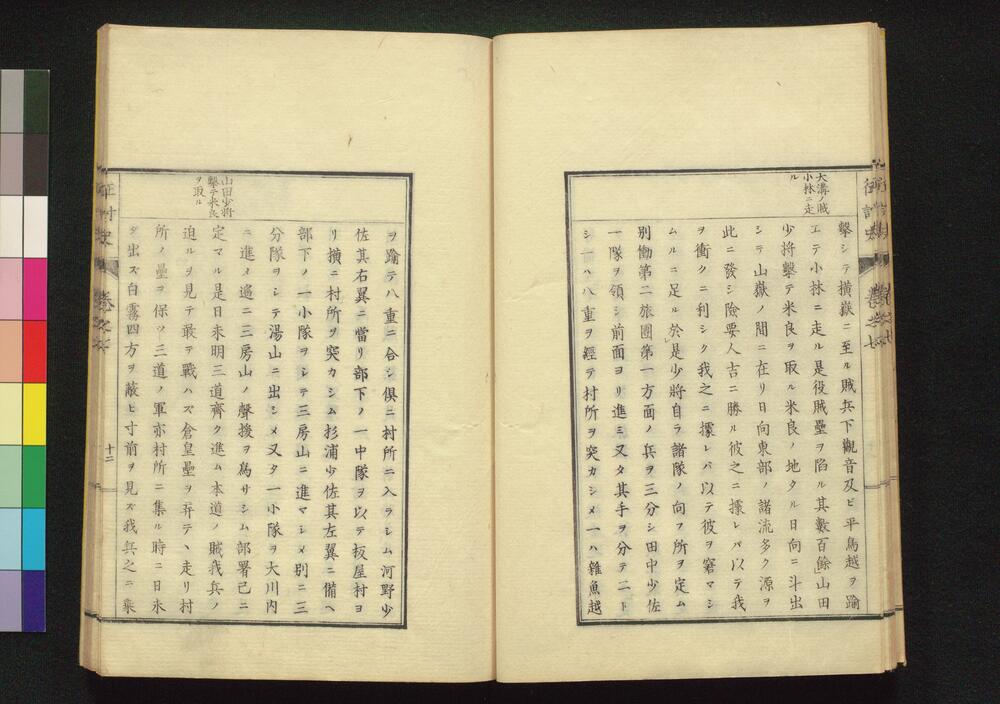 大溝ノ賊
小林ニ走
ル
擊シテ横嶽ニ至ル賊兵下觀音及ヒ平馬越ヲ踰
エテ小林ニ走ル是役賊壘ヲ陷ル其數百餘山田
少將擊テ米良ヲ取ル米良ノ地タル日向ニ斗出
シテ山嶽ノ間ニ在リ日向東部ノ諸流多ク源ヲ
此ニ發シ險要人吉ニ勝ル彼之ニ據レバ以テ我
ヲ衝クニ利シク我之ニ據レバ以テ彼ヲ窘マシ
ムルニ足ル於是少將自ラ諸隊ノ向フ所ヲ定ム
別働第二旅團第一方面ノ兵ヲ三分シ田中少佐
一隊ヲ領シ前面ヨリ進ミ又タ其手ヲ分テ二ト
シ一ハ八重ヲ經テ村所ヲ突カシメ一ハ雜魚越
山田少將
擊テ米良
ヲ取ル
ヲ踰テ八重ニ合シ俱ニ村所ニ入ラシム河野少
佐其右翼ニ當リ部下ノ一中隊ヲ以テ板屋村ヨ
リ横ニ村所ヲ突カシム杉浦少佐其左翼ニ備ヘ
部下ノ一小隊ヲシテ三房山ニ進マシメ別ニ三
分隊ヲシテ湯山ニ出シメ又タ一小隊ヲ大川内
ニ進メ遙ニ三房山ノ聲援ヲ爲サシム部署已ニ
定マル是日未明三道齊ク進ム本道ノ賊我兵ノ
迫ルヲ見テ敢テ戰ハズ倉皇壘ヲ弃テ丶走リ村
所ノ壘ヲ保ツ三道ノ軍亦村所ニ集ル時ニ日未
タ出ズ白霧四方ヲ蔽ヒ寸前ヲ見ズ我兵之ニ乘
征討史
卷之七
十二